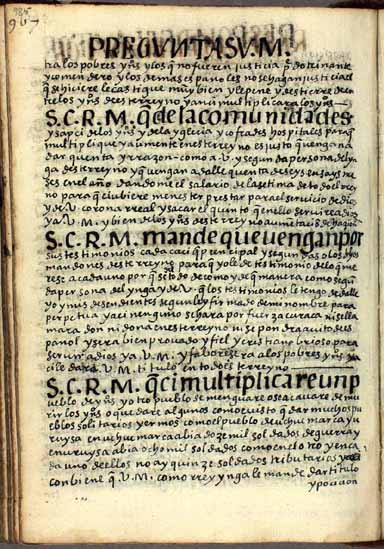 985
967
PREGVNTA SV. M.
tra los pobres yns y los q̃ no fueren justicia prĩ dotrinante
y comendero y los demas espanoles no se hagan justicia el
q̃ se hiciere le castique muy bien y le pene y destierre den
tre los yns deste rreyno y anci multiplicara los yns
S. C. R. M. q̃ de la comunidades
y sapci de los yns y de la yglecia y cofrades hospitales para q̃
multiplique y aumente en este rreyno es justo que venga na
dar quenta y rrazon como a .V. y segunda persona del yn
ga deste rreyno y que vengan a dalle quenta de seys en seys me
ses en el año dandome el salario de la setima de todo el rrey
no para q̃ ci ubiere menester prestar para el seruicio de dios
y de .V. corona rreal y sacar el quinto q̃ en ello seruire a dios
y a .V. M. y bien de los yns deste rreyno
S. C. R. M. mande que uengan por
sus testimonios cada cacique prencipal y segundas o los dichos
mandones deste rreyno para q̃ yo le de testimonio de lo que
merese cada uno por q̃ se todo de como y de q̃ manera como segun
da persona del ynga y de .V. q̃ los testimonios le tengo de dalle
yo y mis desendientes segun ley firmado de mi nombre para
perpetua y aci nenguno se hara por fuersa curaca ni se lla
mara don ni dona en este rreyno ni se pondra auito de es
panol y sera bien prouado y fiel y cristiano brioso para
seruir a dios y a .V. M. y faborese a los pobres yns
cile dara .V. M. titulo en todo este rreyno
S. C. R. M. q̃ ci multiplicare un p
ueblo de yns y otro pueblo se menguare o se acauare de mu
rir los yns o quedare algunos como es justo q̃ dar muchos pu
eblos solitarios yermos como el pueblo de uchuc marca y u
ruysa en uchuc marca abia doze mil soldados de guerra y
en uruysa abia ocho mil soldados como en ello no y en ca
da uno de ellos no ay quinze soldados tributarios
conbiene q̃ .V. M. como rrey ynga le mande dar titulo
y pocicion